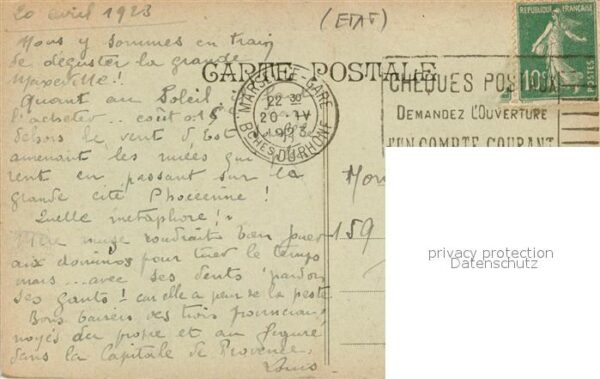 20 avril 1923
(ETAT)
Nous y sommes en train
de déguster la grande
Maxeville !
CARTE POSTALE
Quant au Soleil
l'acheter .. coût 0.15
dehors le vent d'Est
amenant les nuées qui
rent en passant sur la
grande cité Phocéenne !
Quelle métaphore !
muse voudrait bien jouer
aux dominos pour tuer le temps
mais ... avec ses dents ! pardon
ses gants ! car elle a peur de la peste
Bons baisers des trois
noyés du propre et au figuré
dans la Capitale de Provence,
Louis
MARSEILLE-GARE
22 30
20 IV
1923
BCHES DU RHONE
REPUBLIQUE FRANÇAISE
10c
CHEQUES POSTAUX
DEMANDEZ L'OUVERTURE
D'UN COMPTE COURANT
159
privacy protection
Datenschutz